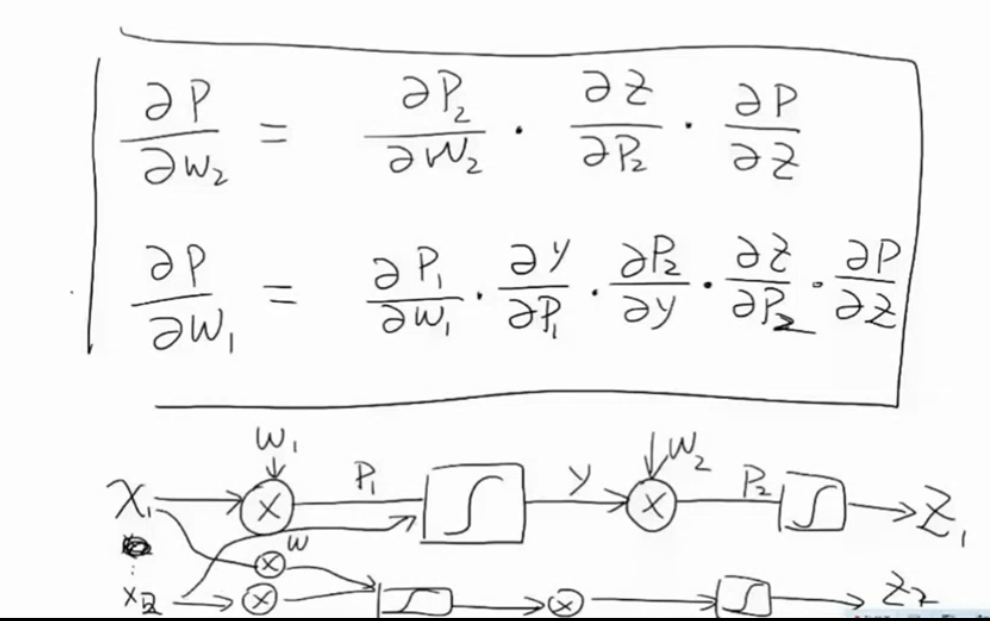 ∂P/∂W₂ = ∂P₂/∂W₂ · ∂Z/∂P₂ · ∂P/∂Z
∂P/∂W₁ = ∂P₁/∂W₁ · ∂y/∂P₁ · ∂P₂/∂y · ∂Z/∂P₂ · ∂P/∂Z
W₁ W₂
X₁ × P₁ ∫ y × P₂ ∫ Z₁
⋮ × W
X₂ × ∫ × ∫ Z₂